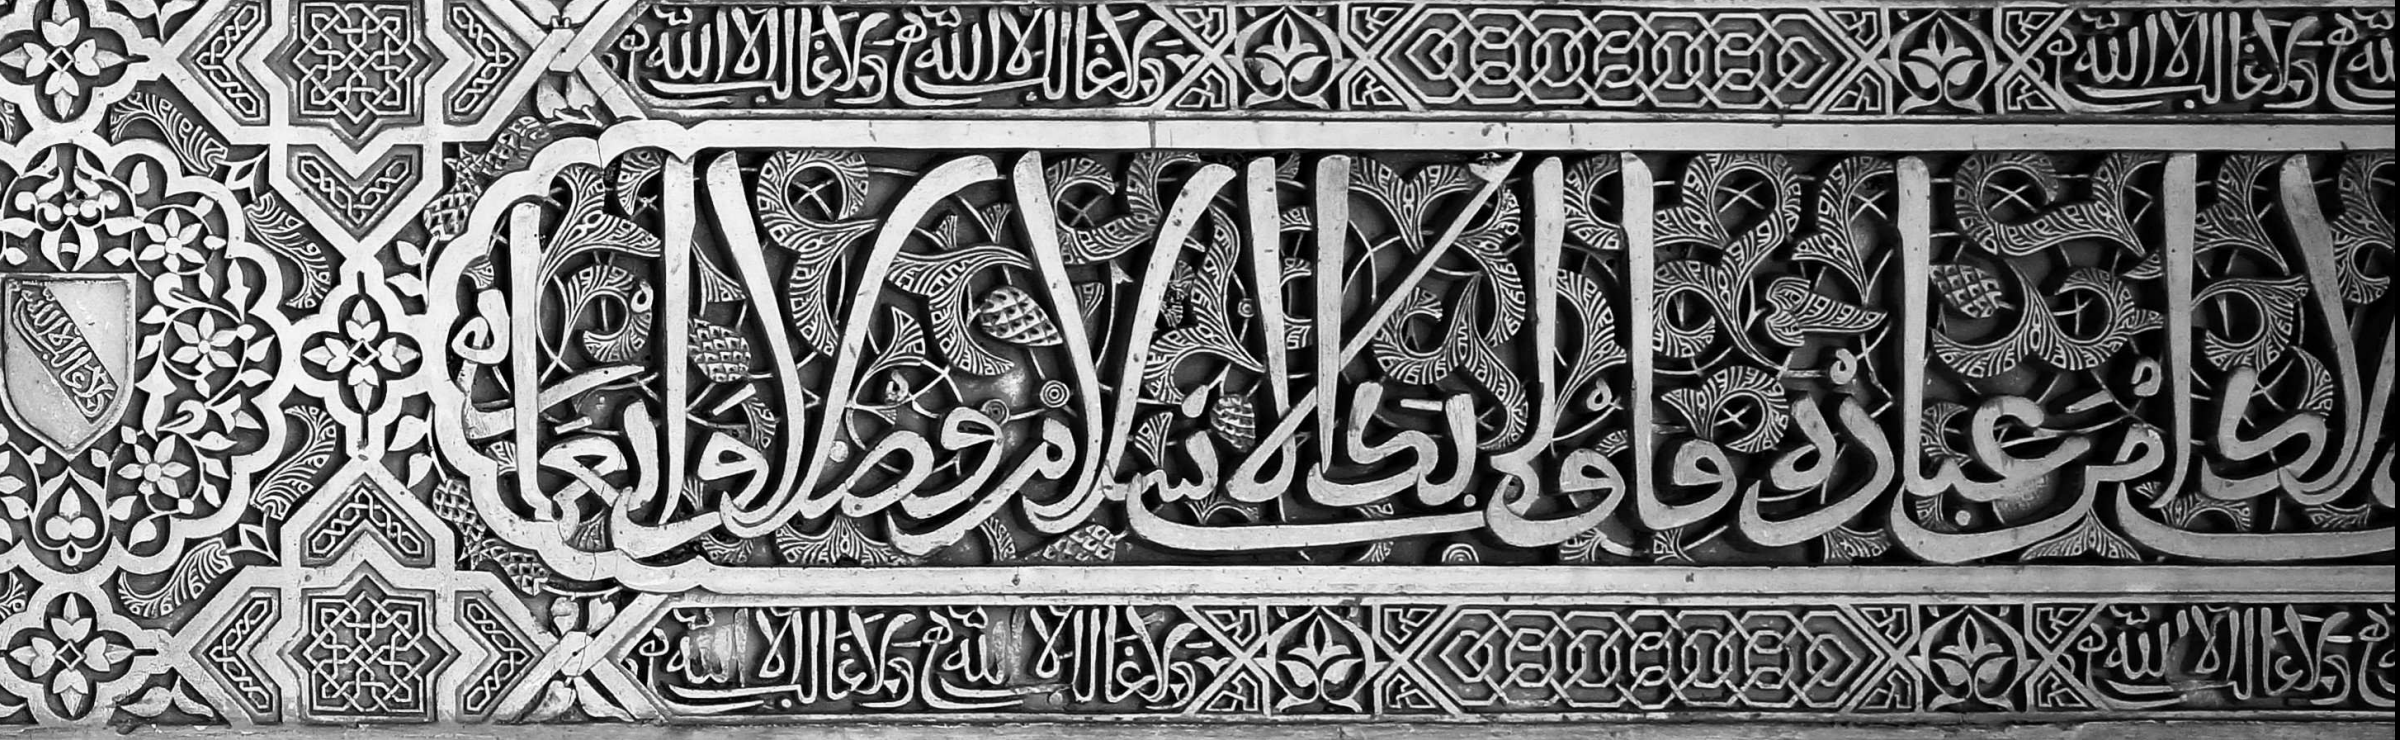 ولا غالب إلا الله ولا غالب إلا الله ولا غالب إلا الله
ولاك أمر عباده فأولى بك الإسلام فضلا وأنعما
ولا غالب إلا الله
ولا غالب إلا الله ولا غالب إلا الله ولا غالب إلا الله